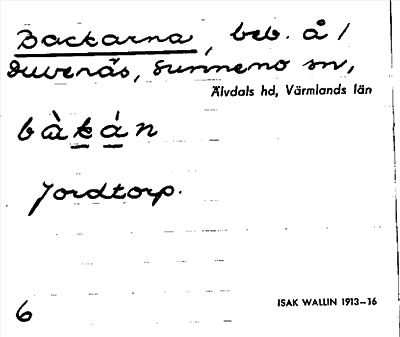 Backarna, beb. å /
Duvenäs, Sunnemo sn,
Älvdals hd, Värmlands län
bàkán
Jordtorp.
6 ISAK WALLIN 1913–16